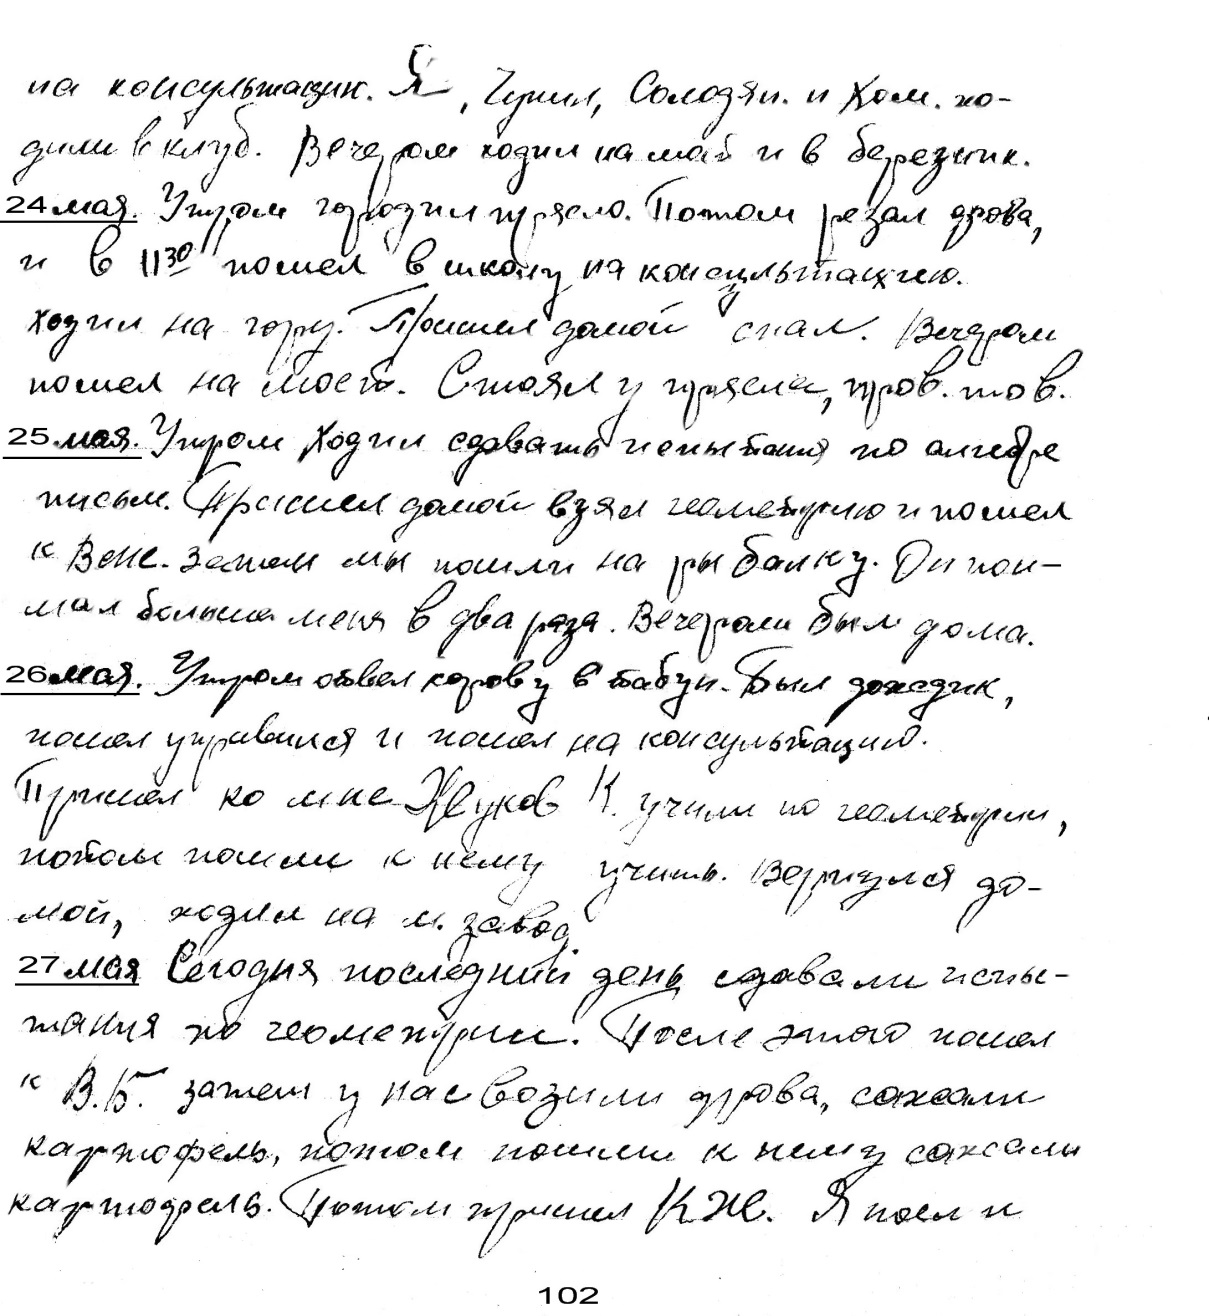 на консультацик. Я, Чупил, Солодян. и Хом. хо-
дили в клуб. Вечером ходил на май и в березник.
24 мая. Утром городил прясло. Потом резал дрова,
и в 11 30 пошел в школу на консультацию.
Ходил на гору. Пришел домой спал. Вечером
пошел на мост. Стоял у прясла, пров. тов.
25 мая. Утром ходил сдавать испытания по алгебре
письм. Пришел домой взял геометрию и пошел
к Затем мы пошли на рыбалку. Он пой-
мал больше меня в два раза. Вечером был дома.
26 мая. Утром отвел корову в табун. Был дождик,
пошел управился и пошел на консультацию.
Пришел ко мне Жуков К. учили по геометрии,
потом пошли к нему учить. Вернулся до-
мой, ходил на м. завод
27 мая Сегодня последний день сдавали испы-
тания по геометрии. После этого пошел
к В.Б. затем у нас возили дрова, сажали
картофель, потом пошли к нему сажали
картофель. Потом пришел К Ж. Я поел и
102